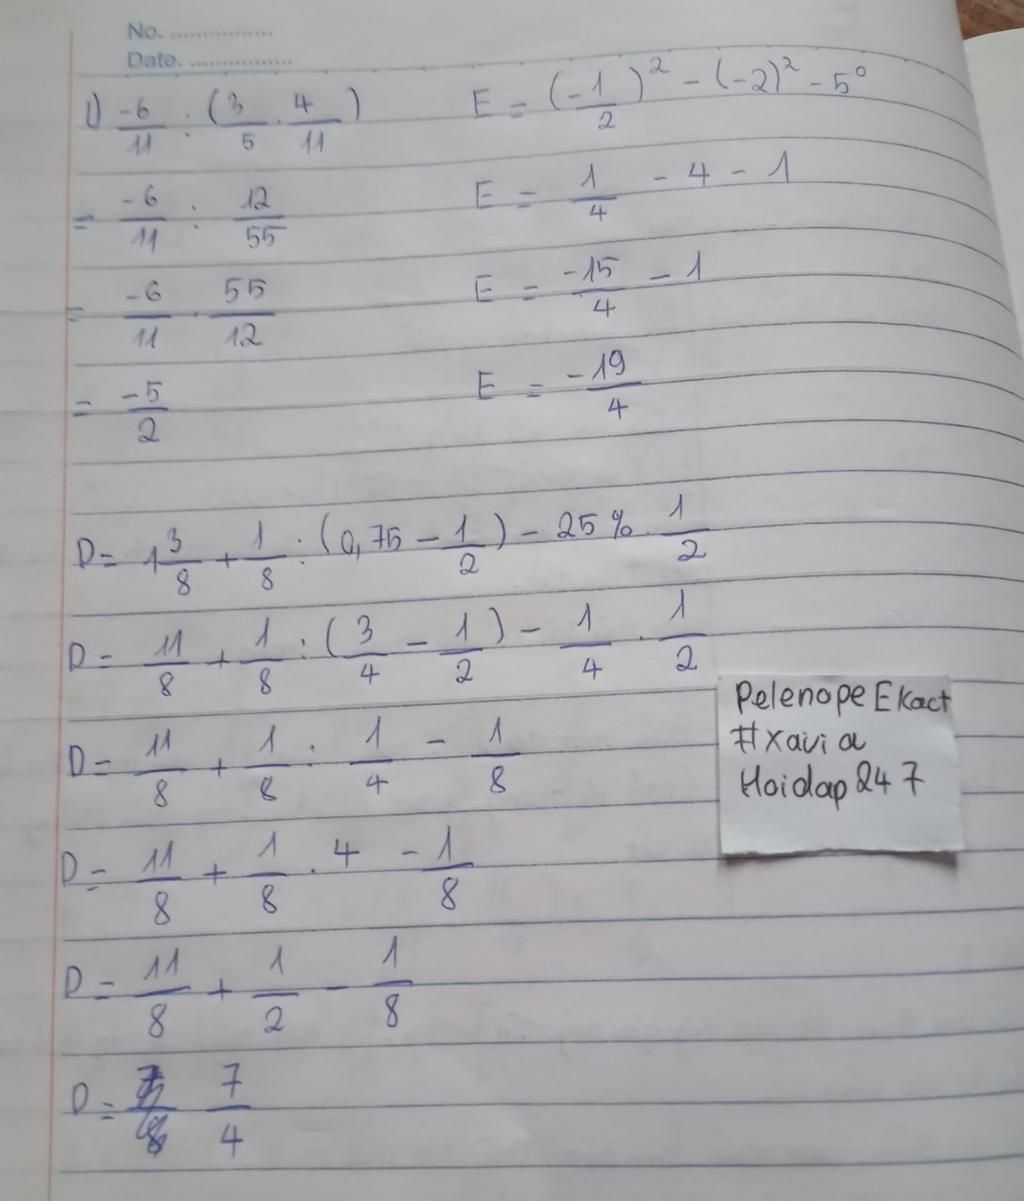 No. ................
Date. ................
1) -6/11 : (3/5 . 4/11)
= -6/11 : 12/55
= -6/11 . 55/12
= -5/2
E = (-1/2)² - (-2)² - 5⁰
E = 1/4 - 4 - 1
E = -15/4 - 1
E = -19/4
D = 1 3/8 + 1/8 : (0,75 - 1/2) - 25% . 1/2
D = 11/8 + 1/8 : (3/4 - 1/2) - 1/4 . 1/2
D = 11/8 + 1/8 : 1/4 - 1/8
D = 11/8 + 1/8 . 4 - 1/8
D = 11/8 + 1/2 - 1/8
D = 7/4
Pelenope Ekact
#xavia
Hoidap247